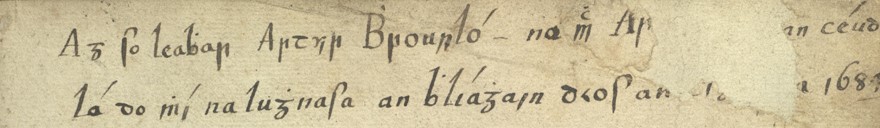 Ag so leaḃar Artúr Brounló – na ṁc Ar an céud
lá do ṁí na luġnasa an ḃliáġain d'aos an 168